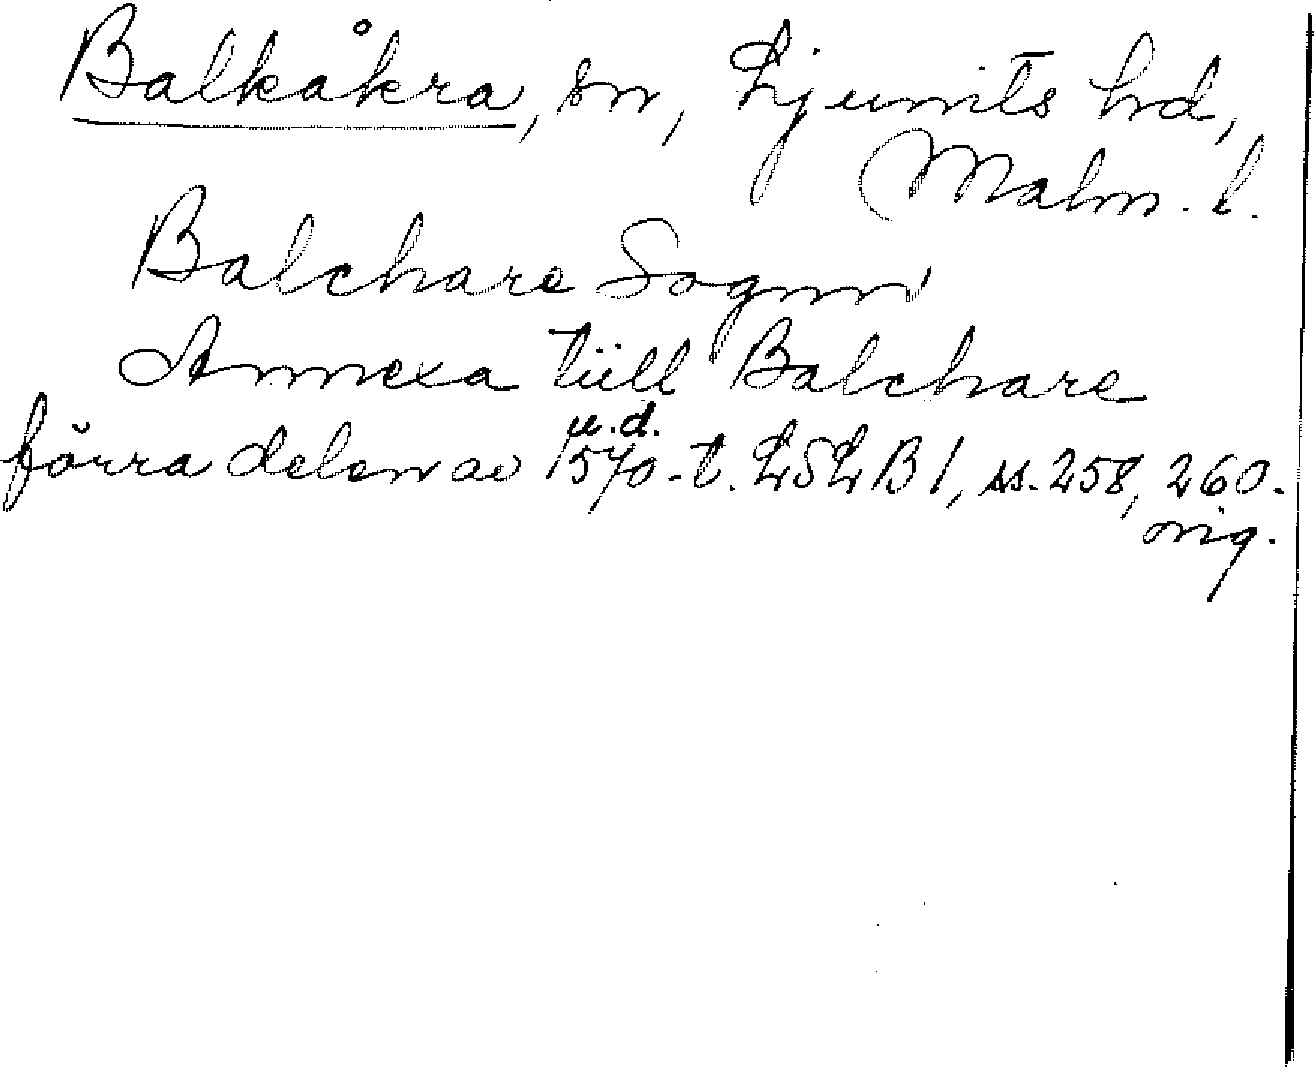 Balkåkra, sn, Ljunits hd,
Malm. l.
Balchare Sognn
Annexa tiill Balchare
u.d.
förra delen av 1570-t. LSLB1, ss. 258, 260.
orig.